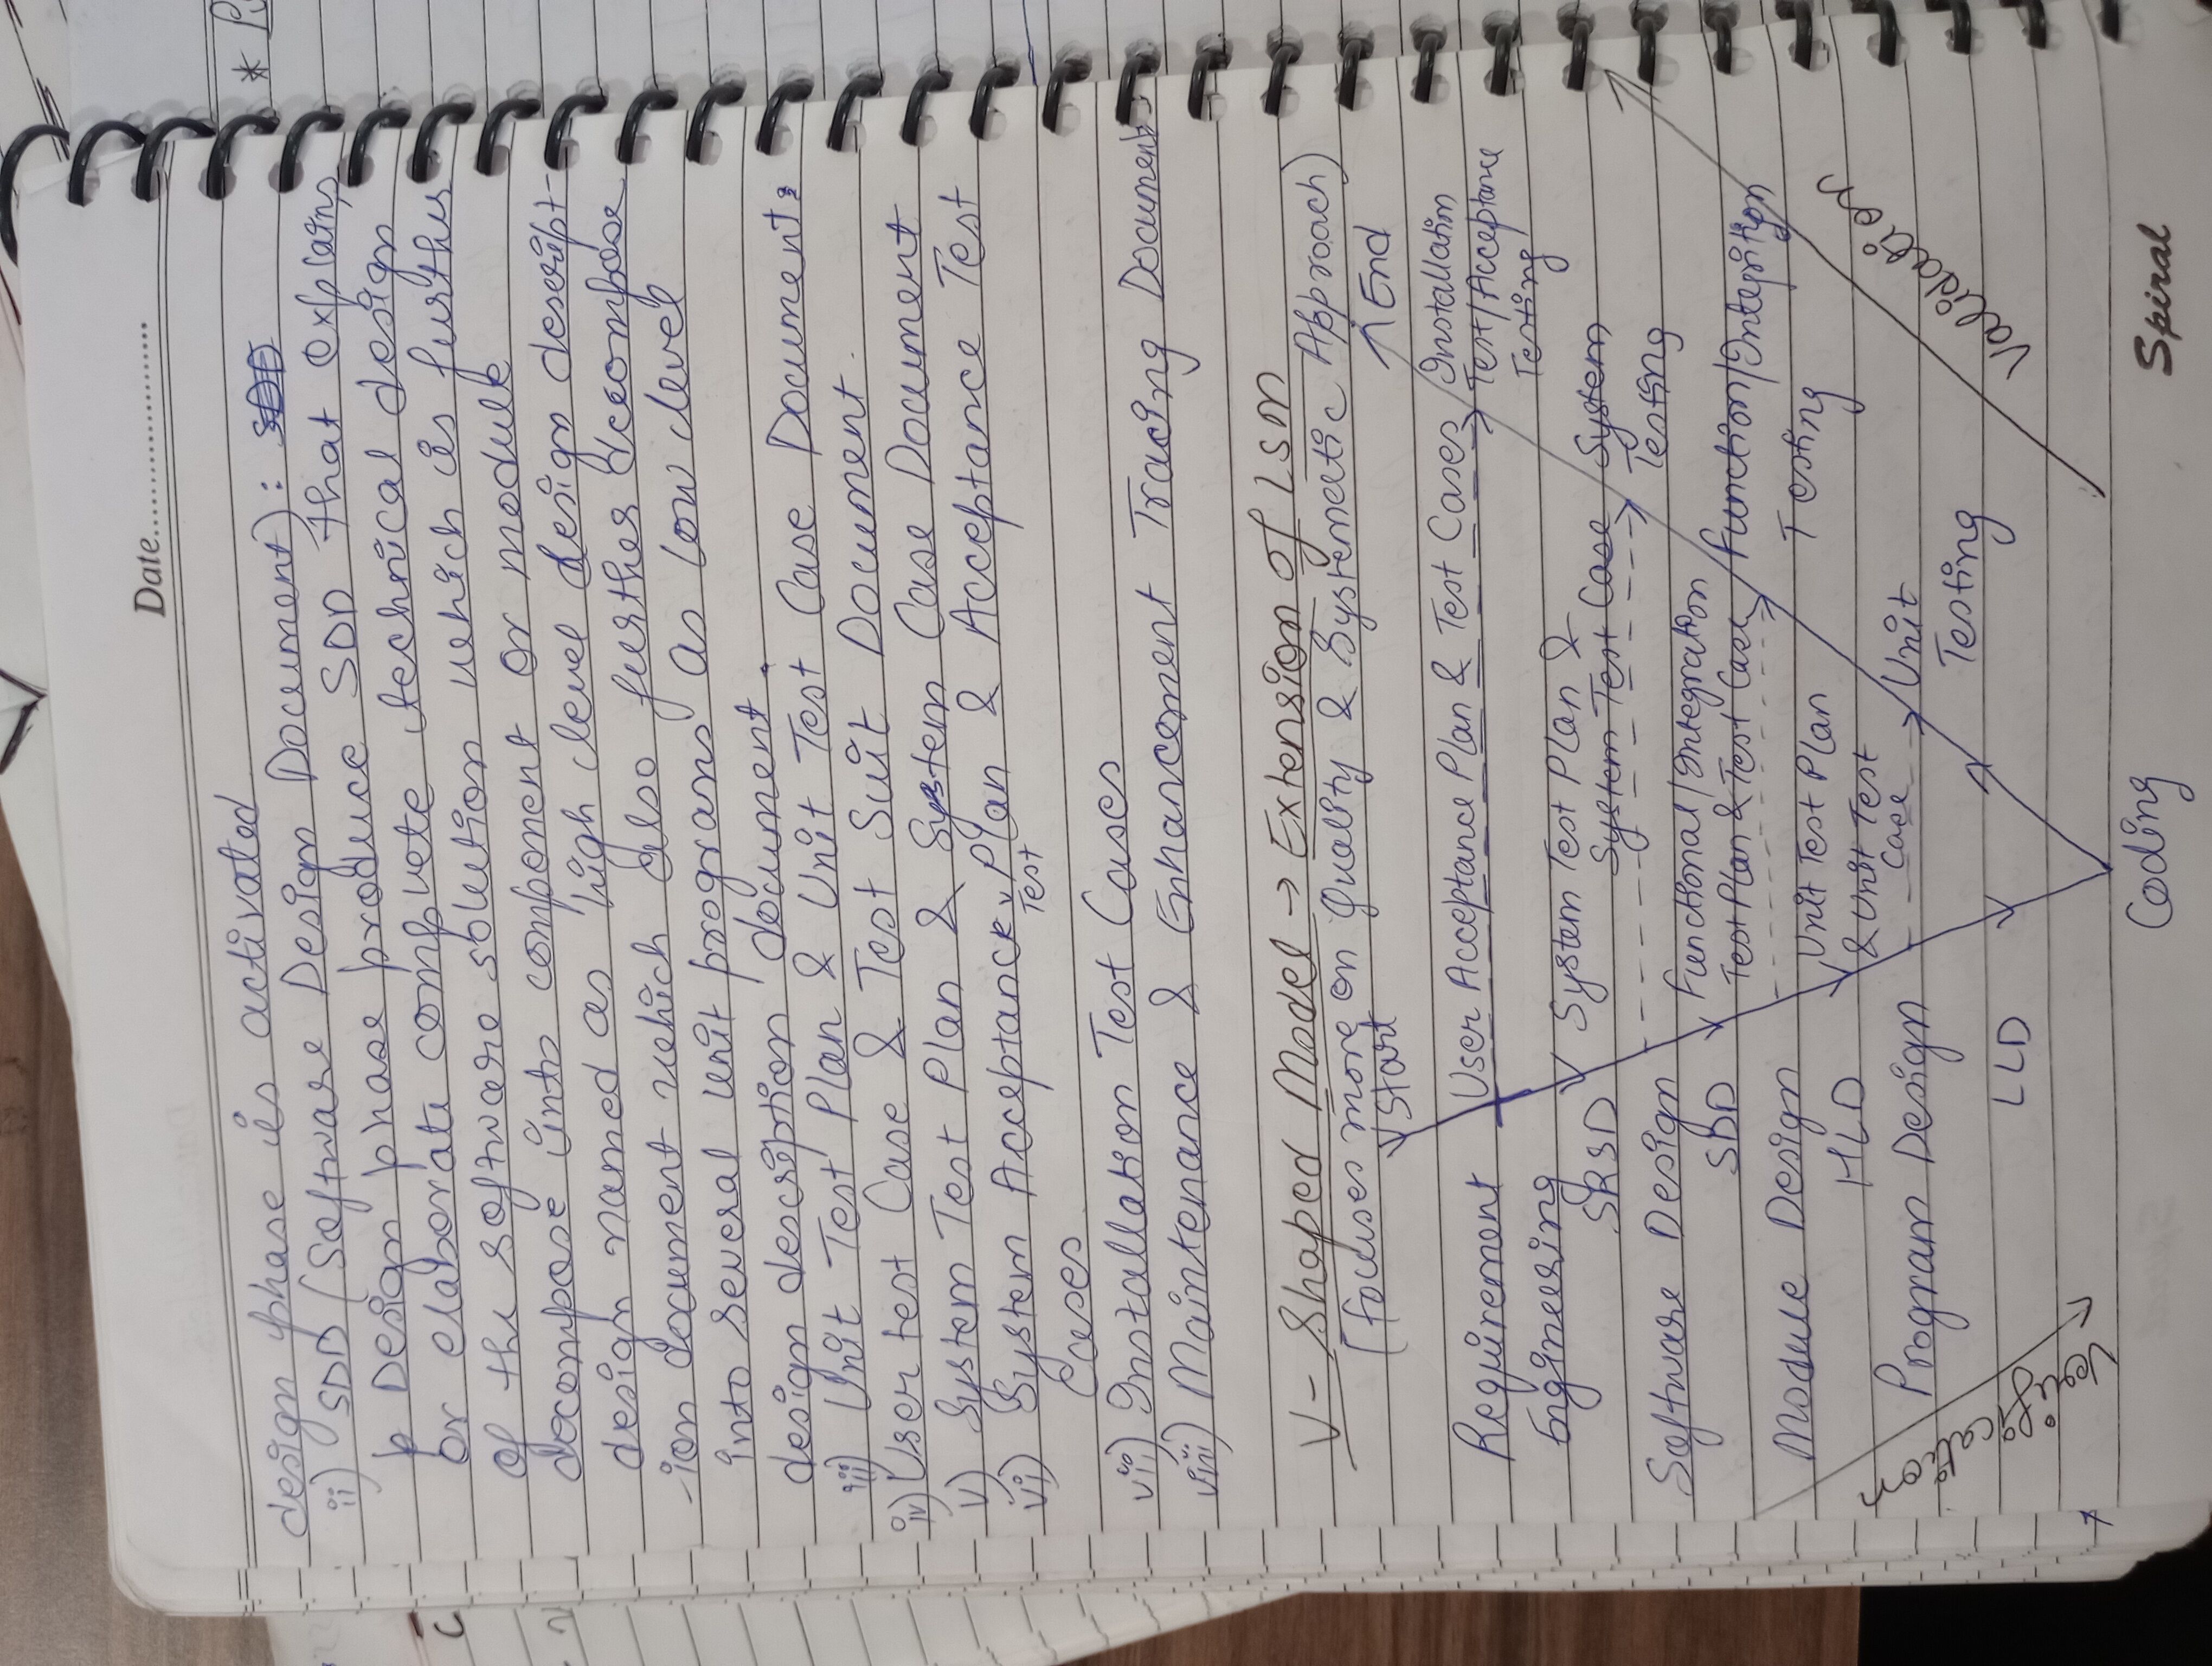 Date
design phase is activated
ii) SDD (Software Design Document):
Design phase produce SDD that explains
or elaborate complete technical design
of the software solution which is further
decompose into component or module
design named as high level design descript-
-ion document which also further decompose
into several unit programs as low level
design description document.
iii) Unit Test Plan & Unit Test Case Document:
iv) User test Case & Test Suit Document.
v) System Test Plan & System Case Document
vi) System Acceptance Test Plan & Acceptance Test
Cases
vii) Installation Test Cases
viii) Maintenance & Enhancement Tracing Document
V-Shaped Model → Extension of LSM
(focuses more on Quality & Systematic Approach)
Start
End
Requirement
Engineering
User Acceptance Plan & Test Cases
Installation
Test/Acceptance
Testing
SRSD
System Test Plan &
System Test Case
System
Testing
Software Design
SDD
Functional/Integration
Test Plan & Test Case
Function/Integrition
Testing
Module Design
HLD
Unit Test Plan
& Unit Test
Case
Unit
Testing
Program Design
LLD
Verification
Validation
Coding
Spiral